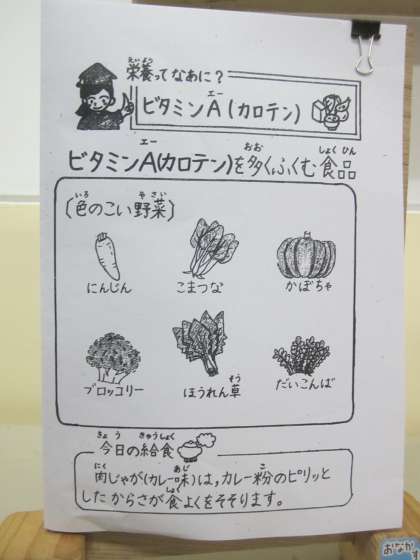 栄養ってなあに？
ビタミンA(カロテン)
ビタミンA(カロテン)を多くふくむ食品
(色のこい野菜)
にんじん こまつな かぼちゃ
ブロッコリー ほうれん草 だいこんば
今日の給食
肉じゃが(カレー味)は,カレー粉のピリッと
したからさが食よくをそそります。
おなか